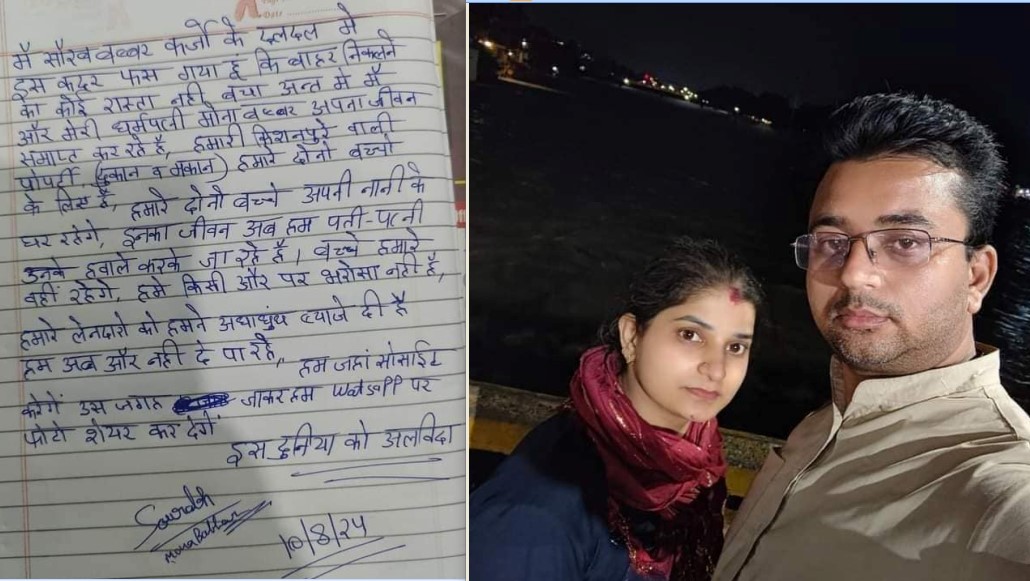 मै सौरव बब्बर कर्जो के दलदल मे
इस कदर फस गया हूं कि बाहर निकलने
का कोई रास्ता नही बचा अन्त मे मै
और मेरी धर्मपत्नी मोना बब्बर अपना जीवन
समाप्त कर रहे है, हमारी किशनपुरे वाली
प्रोपर्टी, (दुकान व मकान) हमारे दोनो बच्चो
के लिए है, हमारे दोनो बच्चे अपनी नानी के
घर रहेगे, इनका जीवन अब हम पती-पत्नी
उनके हवाले करके जा रहे है। बच्चे हमारे
वहीं रहेगे, हमे किसी और पर भरोसा नही है,
हमारे लेनदारो को हमने अंधाधुंध ब्याजे दी है
हम अब और नही दे पा रहे, हम जहां सोसाईट
करेगें उस जगह जाकर हम watsapp पर
फोटो शेयर कर देगें
इस दुनिया को अलविदा
Sourabh
Mona Babbar
10/8/24